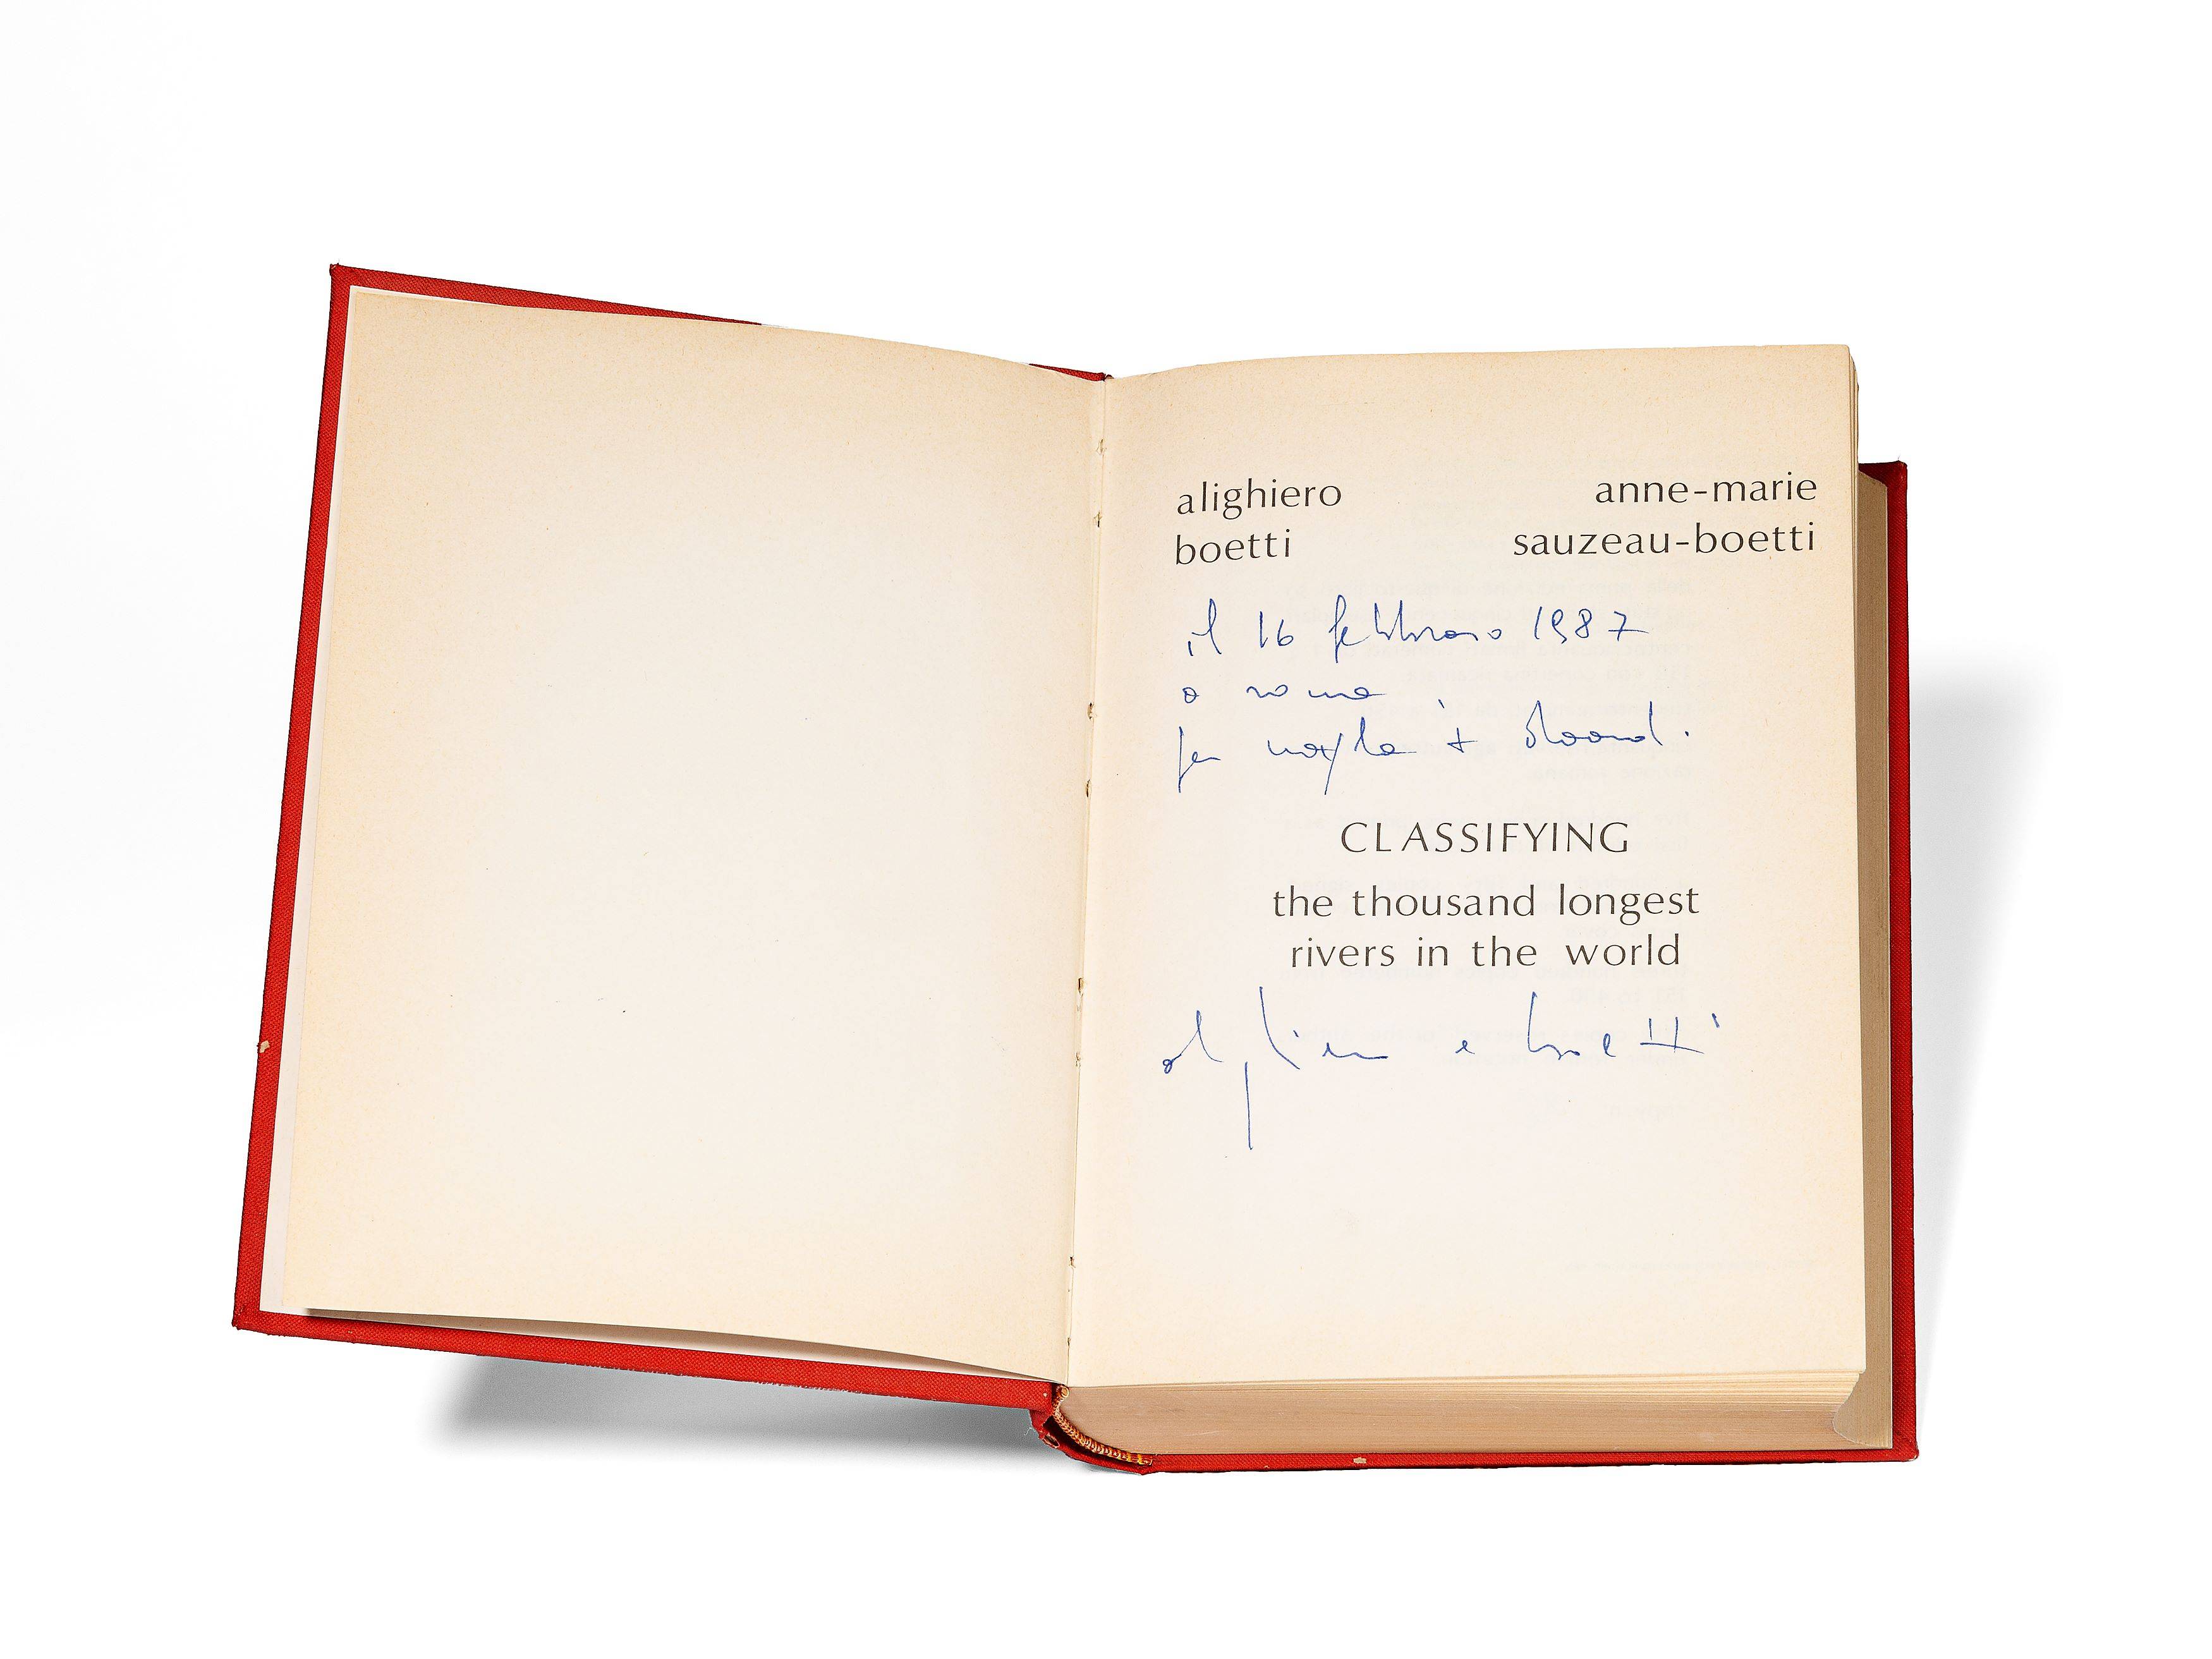 alighiero anne-marie
boetti sauzeau-boetti
il 16 febbraio 1987
a roma
per
CLASSIFYING
the thousand longest
rivers in the world
alighiero e boetti